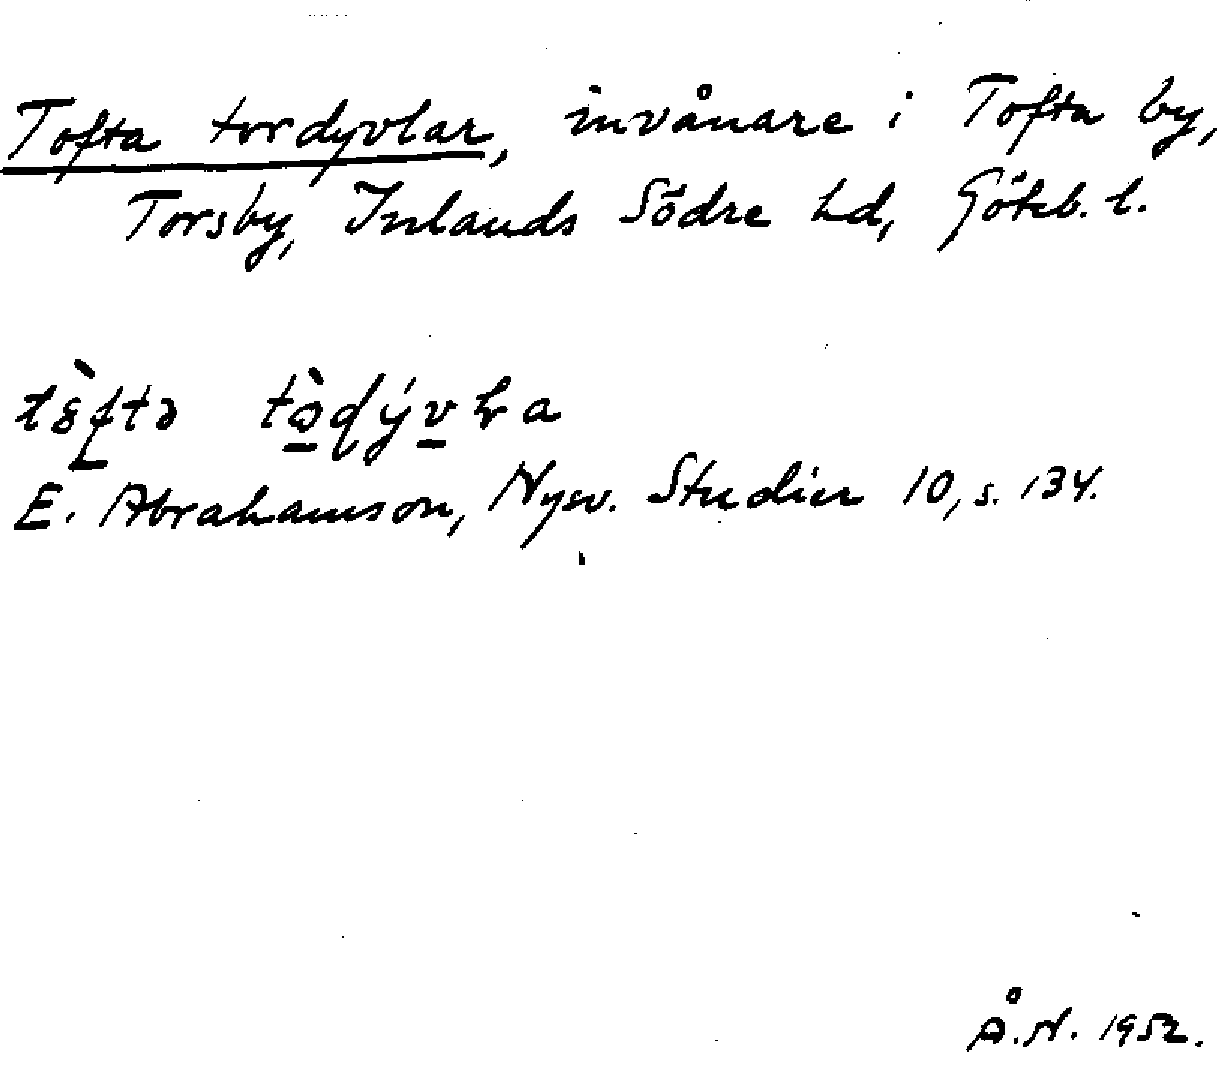 Tofta tordyvlar, invånare i Tofta by,
Torsby, Inlands Södre hd, Göteb. l.
E. Abrahamson, Nysv. Studier 10, s. 134.
Å.N. 1952.